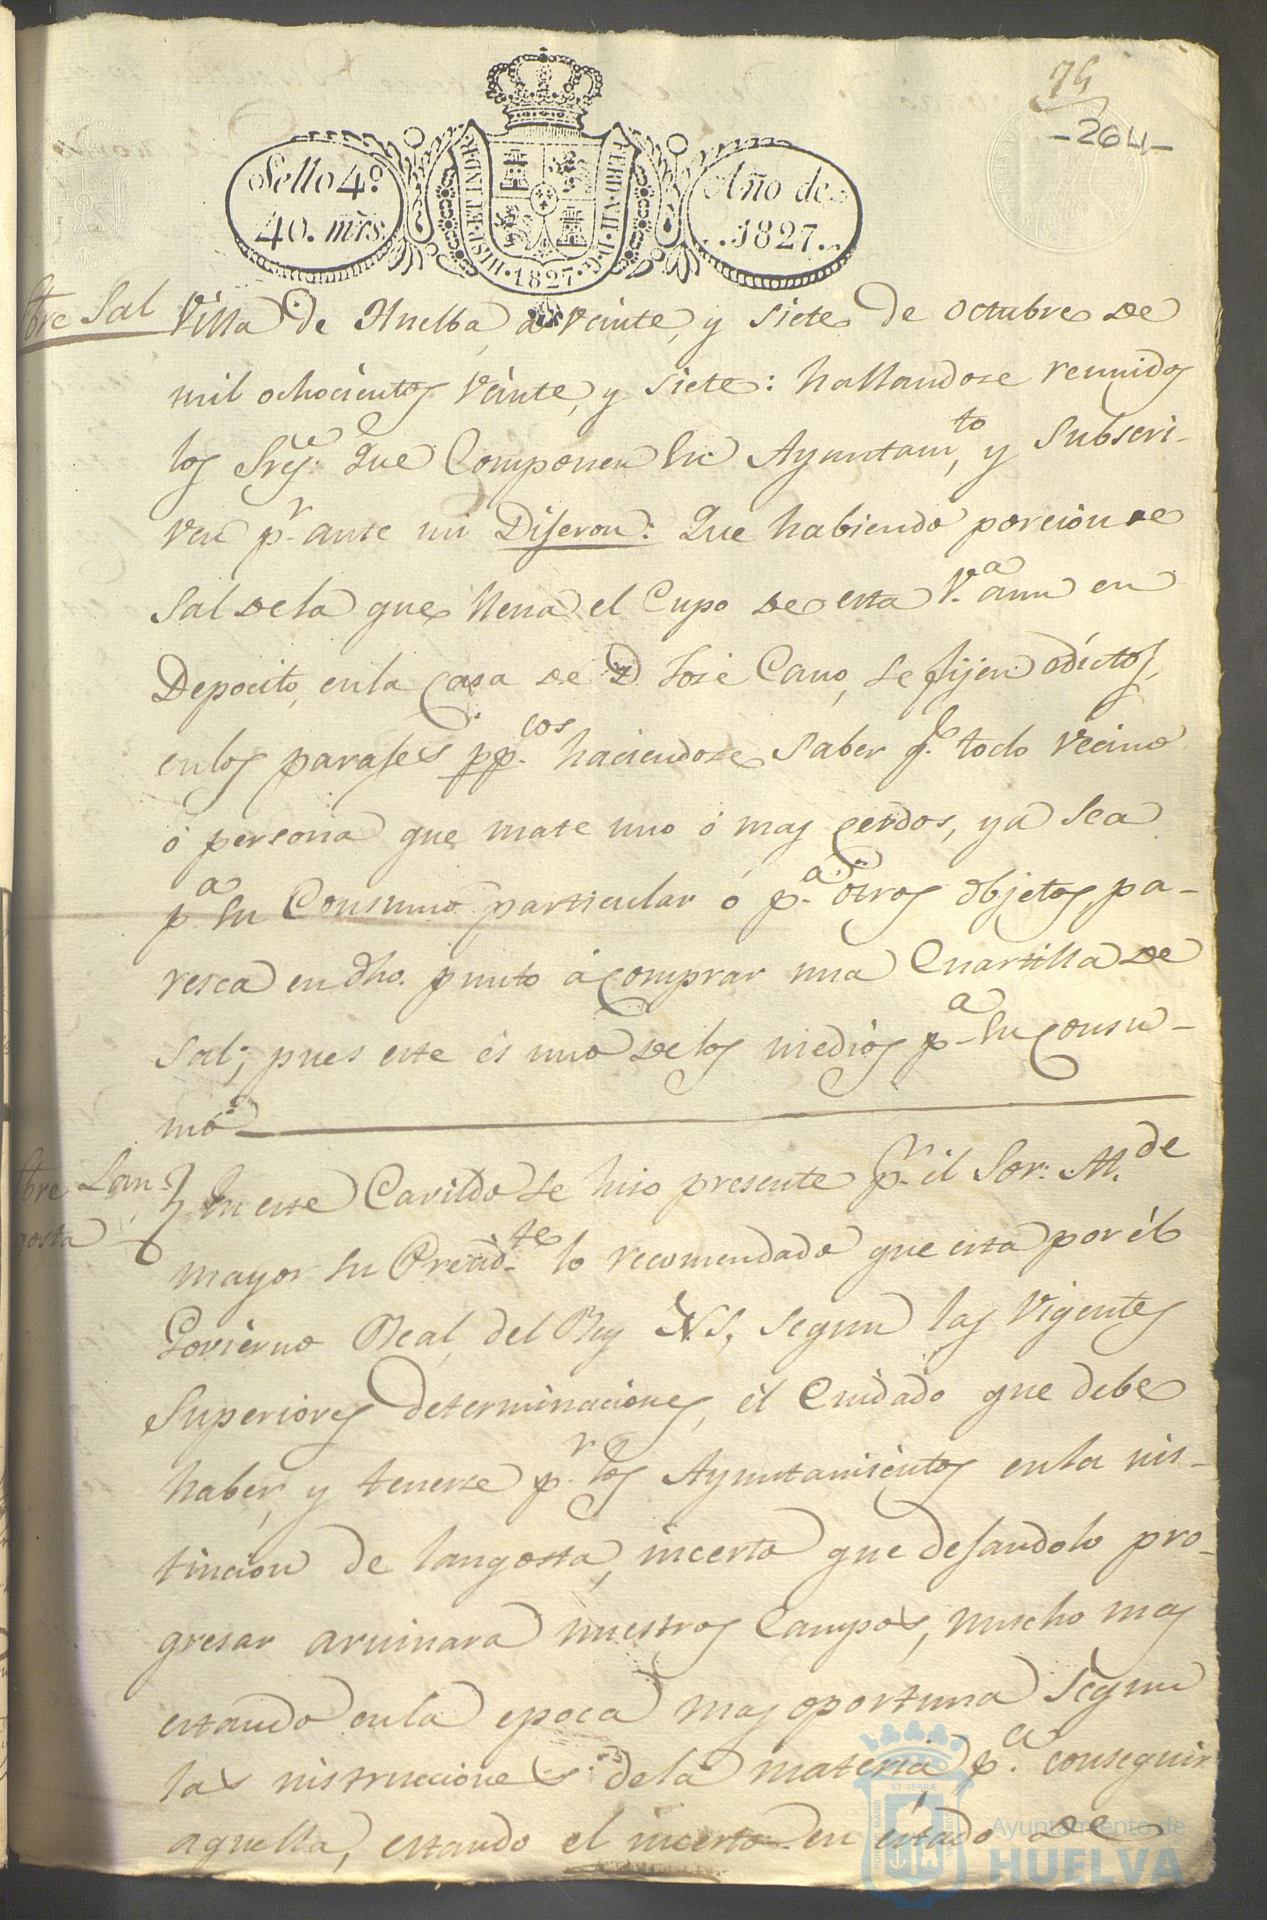 76
-264-
Sello 4º
40. mrs
HISP. ET IND. R.
FERD. VII. D. G.
.1827.
Año de
..1827..
bre Sal
Villa de Huelba, a veinte, y siete de octubre de
mil ochocientos veinte, y siete: hallandose reunidos
los Sres. que Componen su Ayuntamto, y Subscri-
ven pr ante mi Dijeron: Que habiendo porcion de
Sal dela que llena el Cupo de esta V.a aun en
Depocito, en la Casa de D José Cano, se fijen edictos,
en los parajes ppcos. haciendose saber qe. todo vecino
ó persona que mate uno ó mas cerdos, ya sea
pa su Consumo particular ó pa. otros objetos, pa-
resca en dho. punto á comprar una Cuartilla de
Sal; pues este és uno de los medios pa su consu-
mo
bre Lan-
gosta
En este Cavildo se hiso presente pr. él Sor. Al.de
mayor su Presidte. lo recomendado que esta por él
Govierno Real, del Rey NS, segun las Vigentes
Superiores determinaciones, él Cuidado que debe
haber, y tenerse pr. los Ayuntamientos en la nis-
tincion de langosta, incerto que dejandolo pro-
gresar aruinara nuestros Campos, mucho mas
estando en la epoca mas oportuna segun
las nistrucciones. de la materia pa. conseguir
aquella, estando el incerto en estado de
Ayuntamiento de
HUELVA